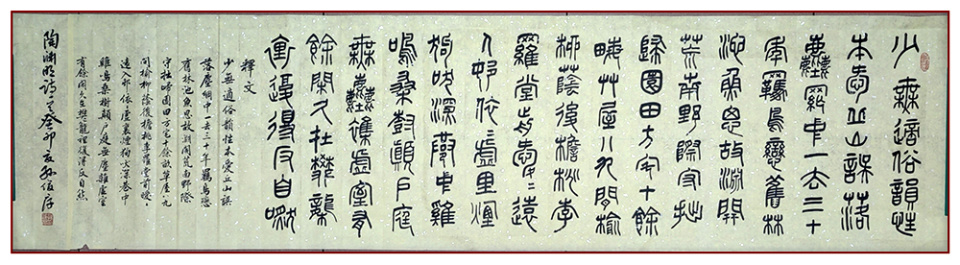 少無適俗韻性
本愛丘山誤落
塵網中一去三十
年羈鳥戀舊林
池魚思故淵開
荒南野際守拙
歸園田方宅十餘
畝艸屋八九間榆
柳蔭後檐桃李
羅堂前曖曖遠
人邨依依虛里煙
狗吠深巷中雞
鳴桑樹顛戶庭
無塵雜虛室有
餘閑久在樊籠
裏復得反自然
釋文
少無適俗韻性本愛丘山誤
落塵網中一去三十年羈鳥戀
舊林池魚思故淵開荒南野際
守拙歸園田方宅十餘畝草屋八九
間榆柳蔭後檐桃李羅堂前曖曖
遠人邨依依虛里煙狗吠深巷中
雞鳴桑樹顛戶庭無塵雜虛室
有餘閑久在樊籠裡復得返自然
陶淵明詩癸卯夏孫